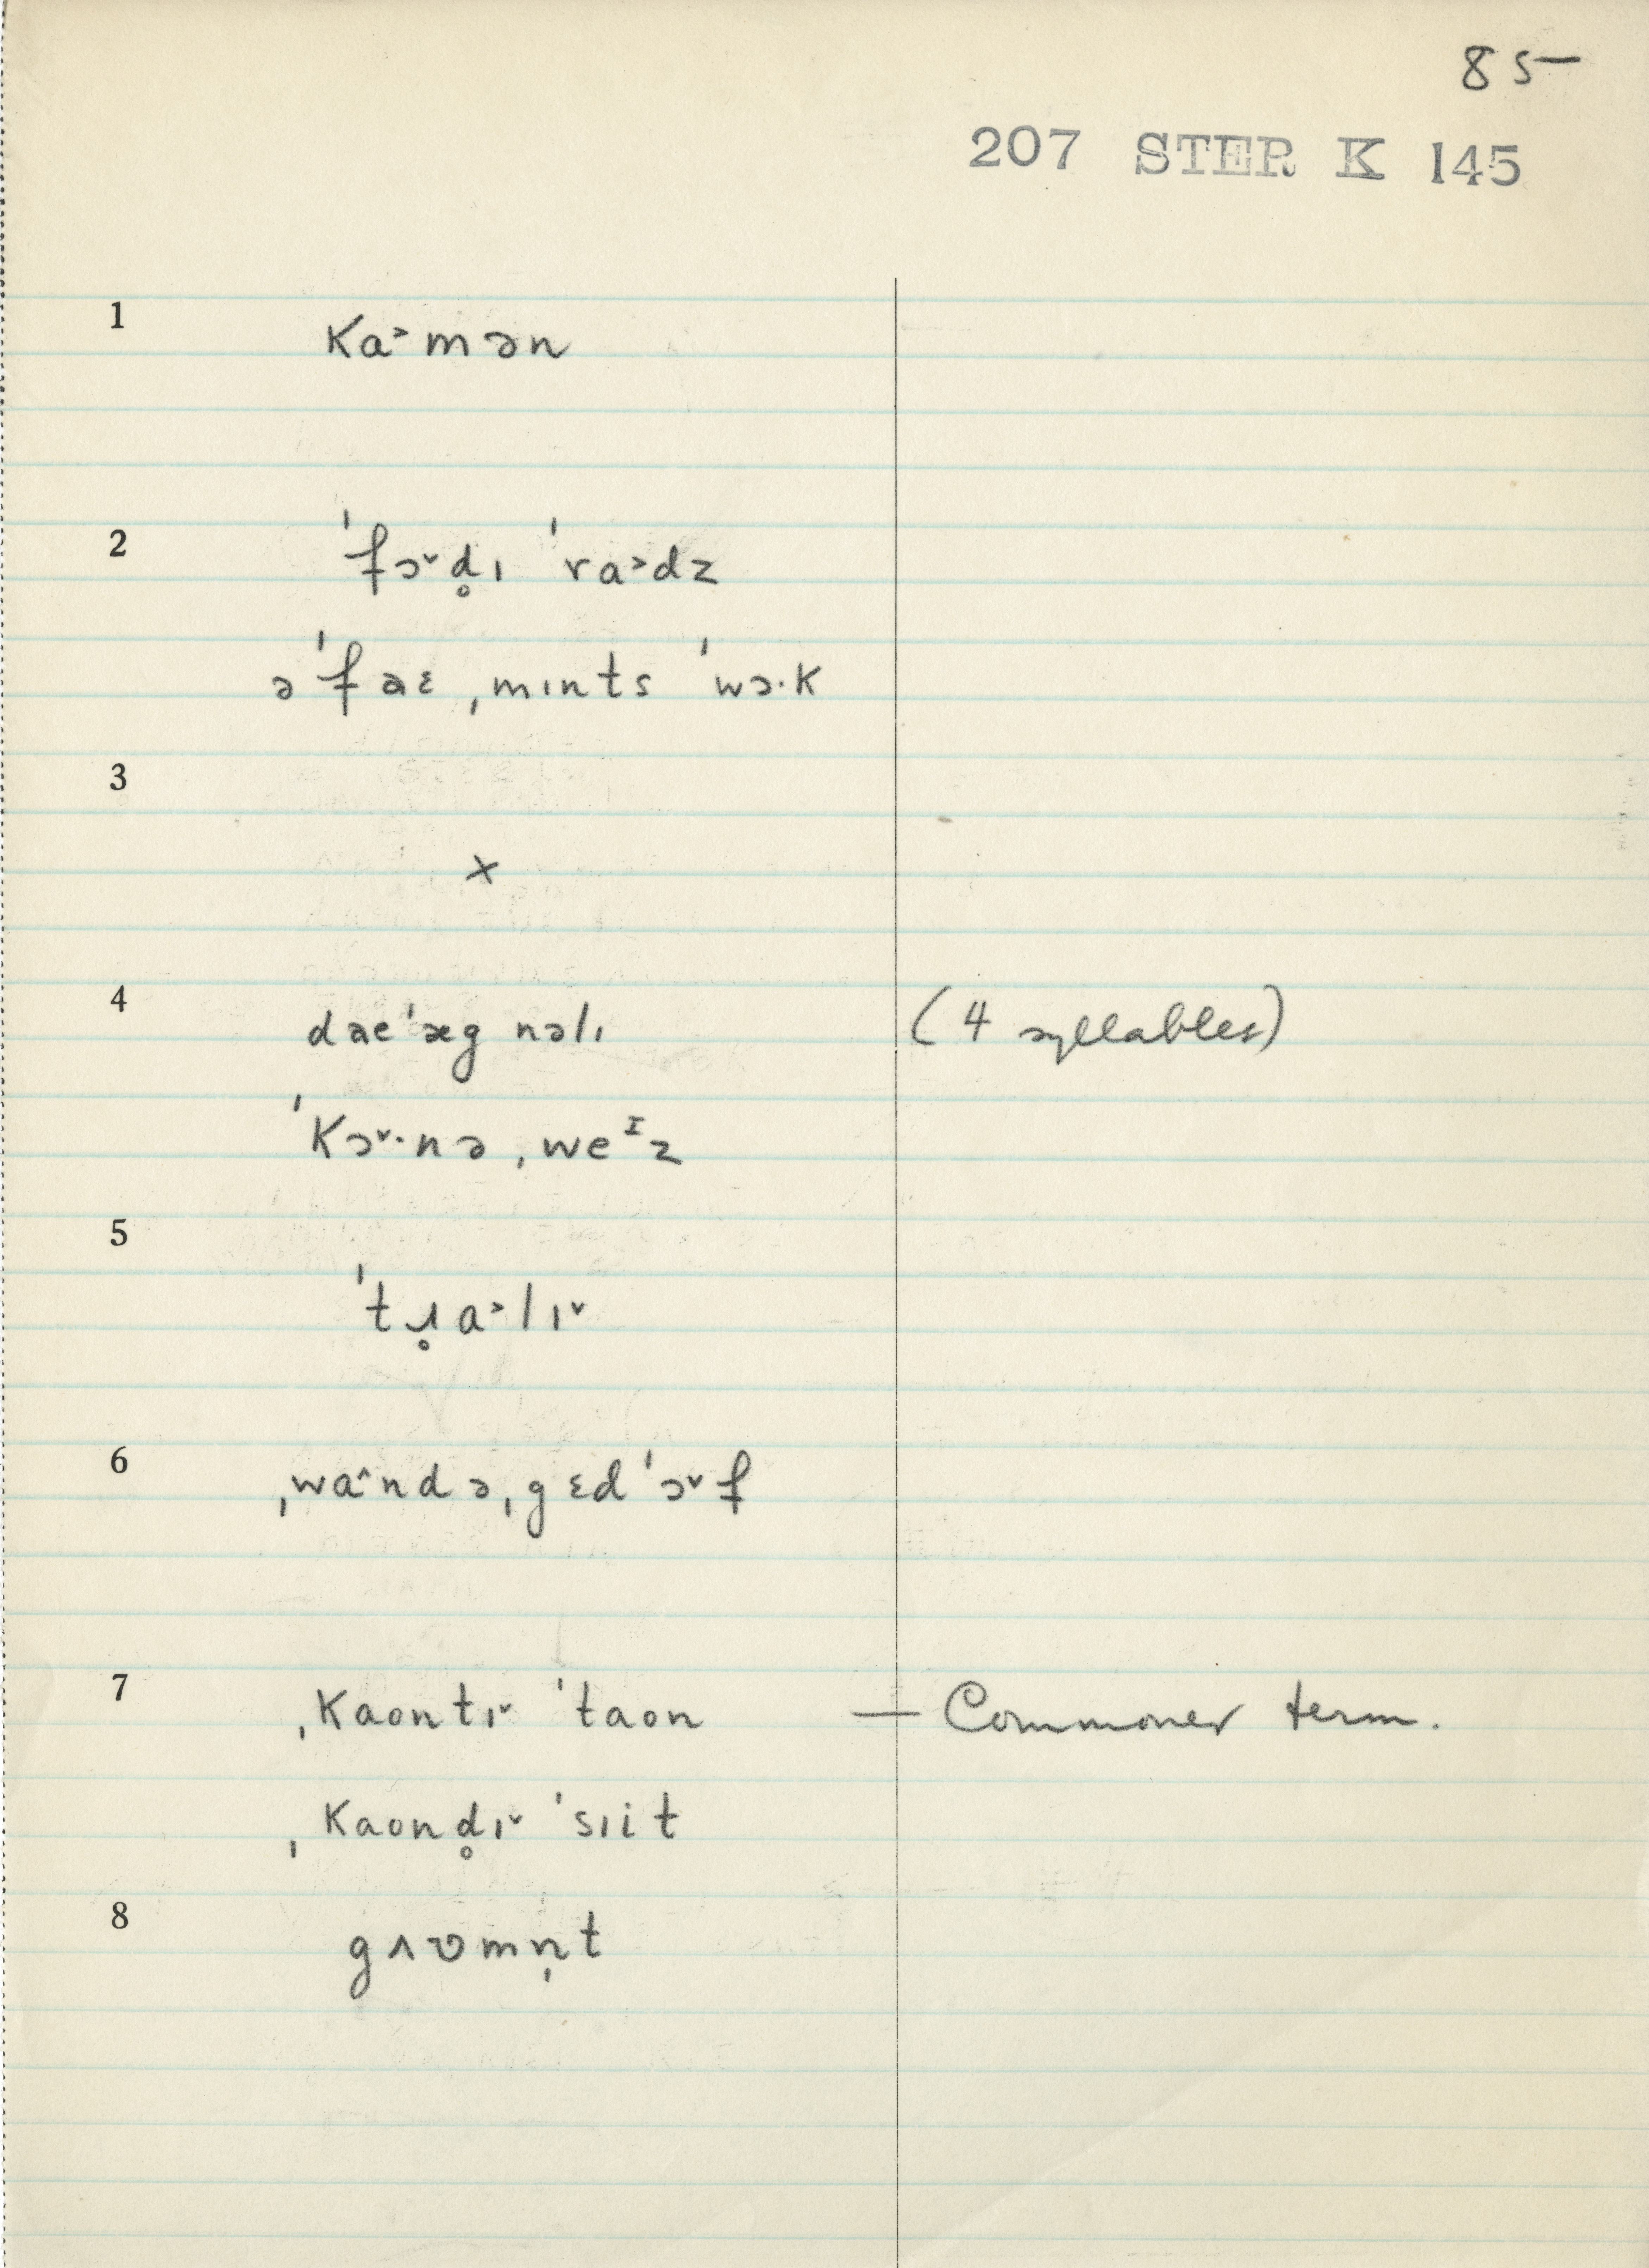 85
207 STER K 145
1
ka˃mən
2
ˈfɔ˅d̥ɪ ˈra˃dz
əˈfaɛ ˌmɪnts ˈwɔ·k
3
x
4
daeˈægnəlɪ (4 syllables)
ˈkɔ˅·nə ˌweᴵz
5
ˈtɹ̥a˃lɪ˅
6
ˌwa˄ndə ˌgɛdˈɔ˅f
7
ˌkaontɪ˅ ˈtaon — Commoner term.
ˌkaond̥ɪ˅ ˈsɪit
8
gʌʋmn̩t